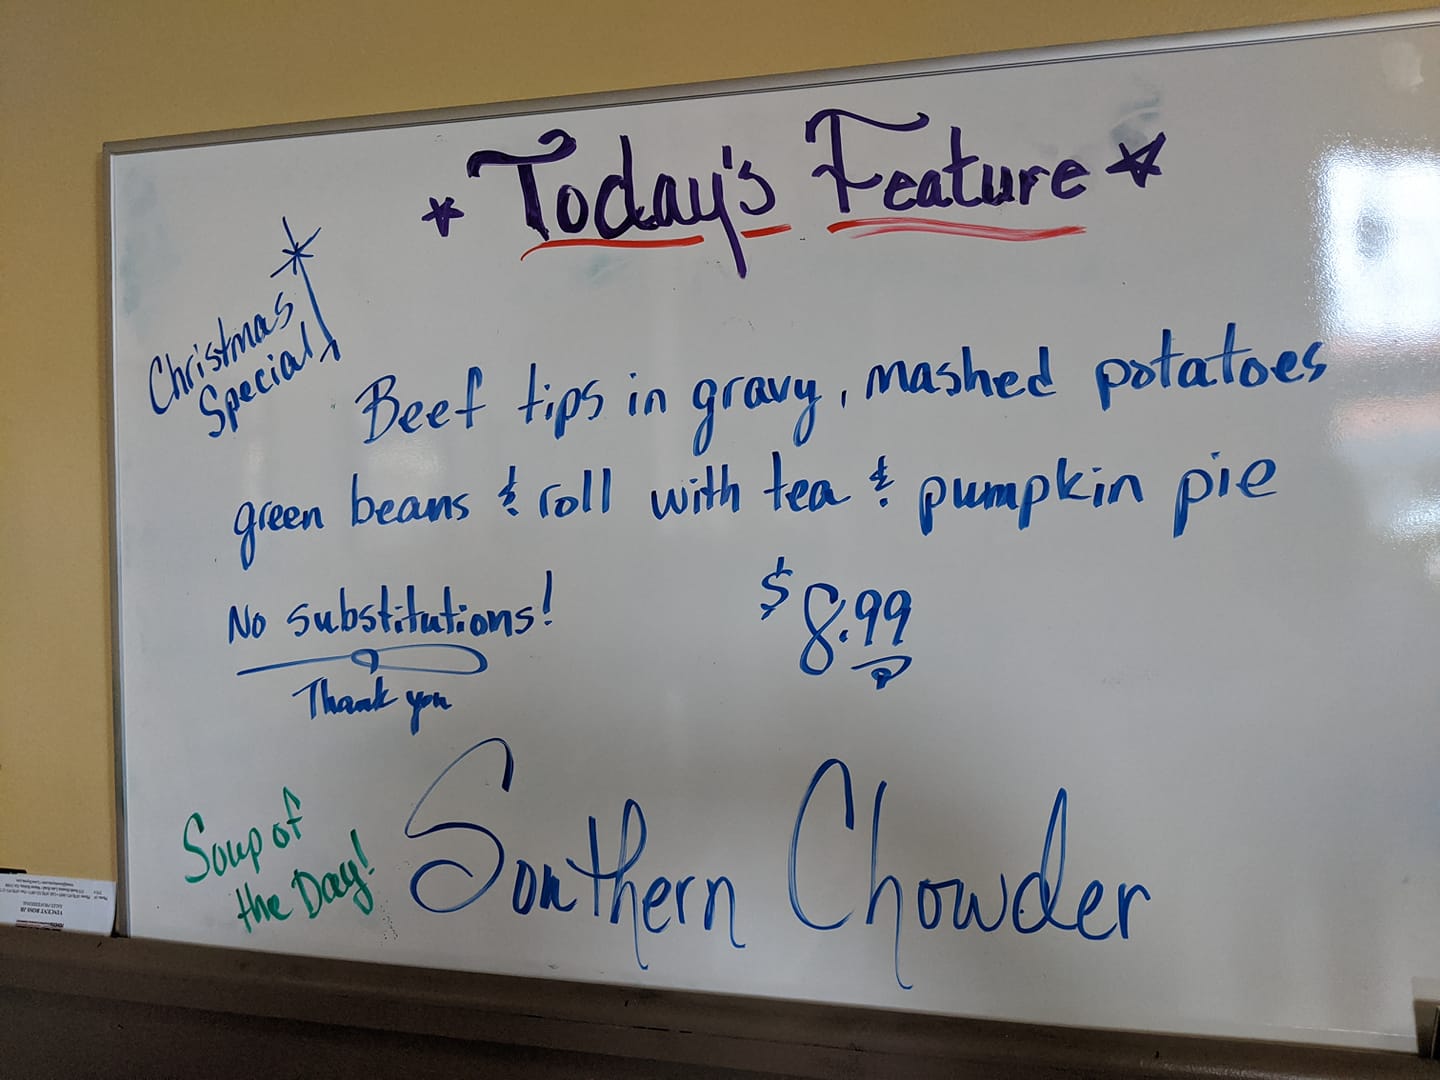 Today's Feature
Christmas
Special
Beef tips in gravy, mashed potatoes
green beans & roll with tea & pumpkin pie
No substitutions!
$8.99
Thank you
Soup of
the Day!
Southern Chowder
VINCENT ROSS JR
SALES PROFESSIONAL